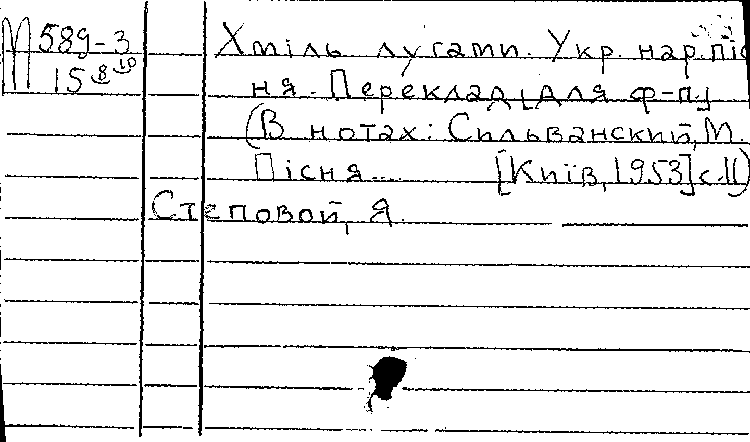 М 589-3 Хміль лугами. Укр. нар. піс
15 8 10 ня. Переклад [для ф-п]
(В нотах: Сильванский, М.
Пісня... [Київ, 1953] с.11)
Степовой, Я.